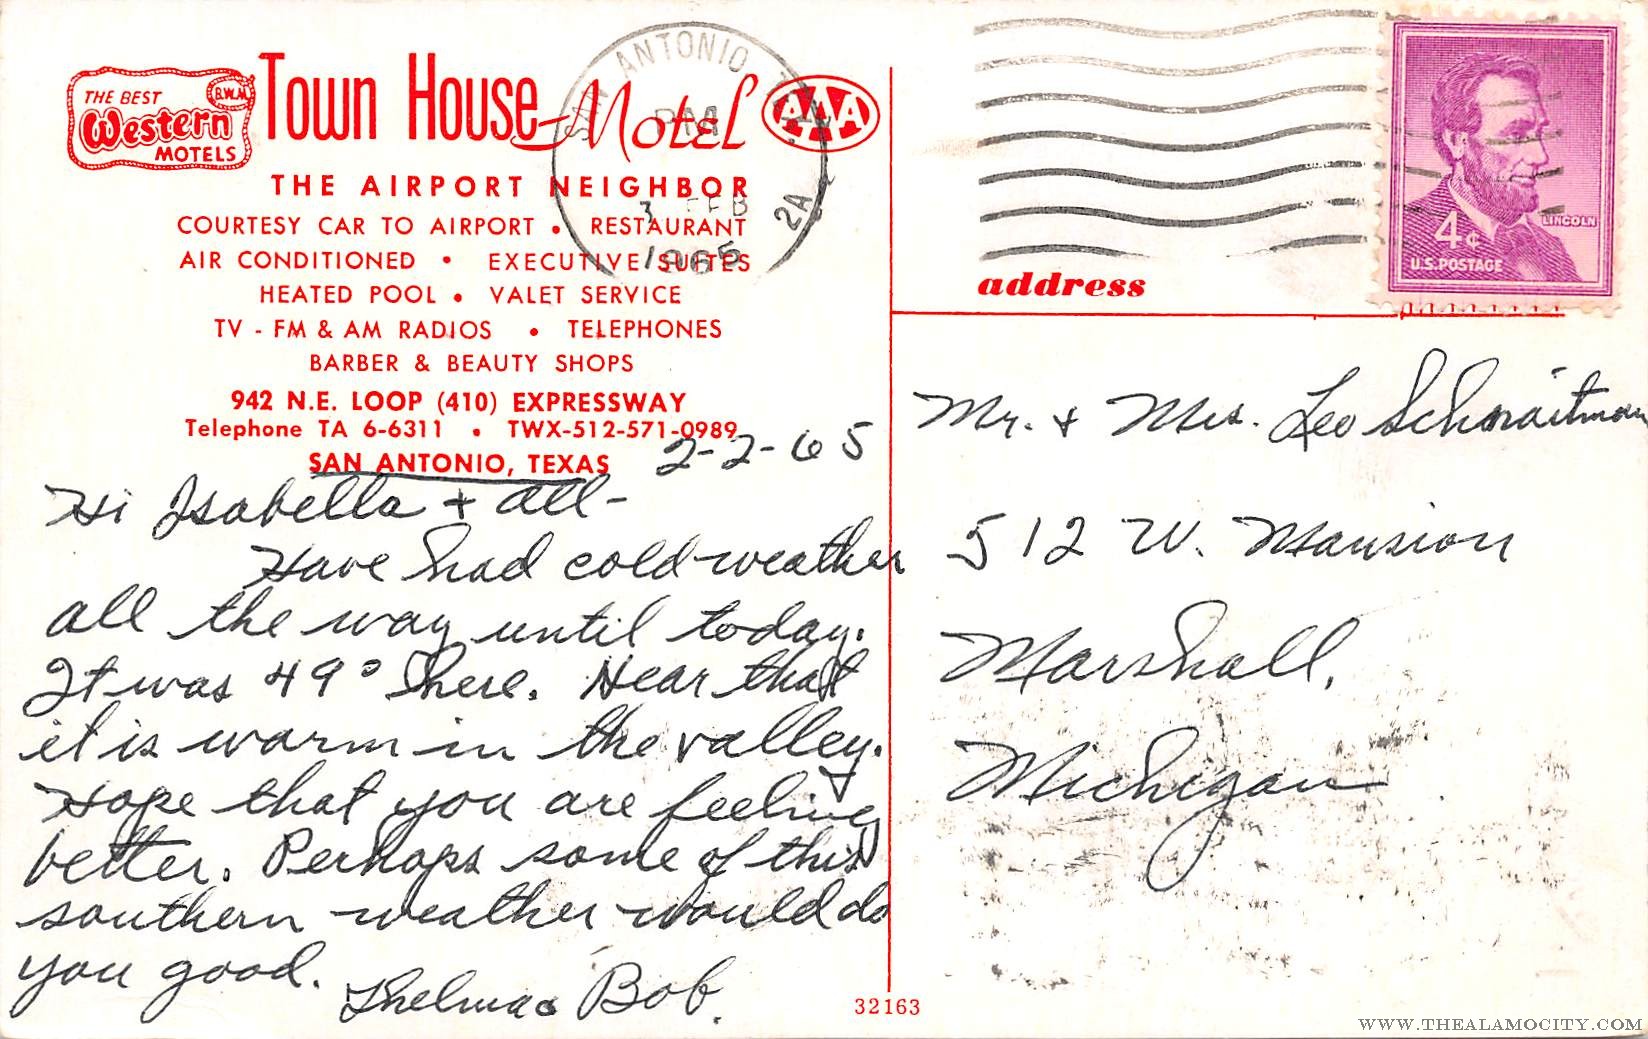 THE BEST
B.W.M.
Western
MOTELS
Town House Motel
AAA
THE AIRPORT NEIGHBOR
COURTESY CAR TO AIRPORT • RESTAURANT
AIR CONDITIONED • EXECUTIVE SUITES
HEATED POOL • VALET SERVICE
TV - FM & AM RADIOS • TELEPHONES
BARBER & BEAUTY SHOPS
942 N.E. LOOP (410) EXPRESSWAY
Telephone TA 6-6311 • TWX-512-571-0989
SAN ANTONIO, TEXAS
2-2-65
Hi Isabella + all-
Have had cold weather
all the way until today.
It was 49° here. Hear that
it is warm in the valley.
Hope that you are feeling
better. Perhaps some of this
southern weather would do
you good.
Thelma & Bob.
SAN ANTONIO, T
PM
3 FEB
1965
2A
LINCOLN
4¢
U.S. POSTAGE
address
Mr. + Mrs. Leo Schwaitman
512 W. Mansion
Marshall,
Michigan
32163
WWW.THEALAMOCITY.COM